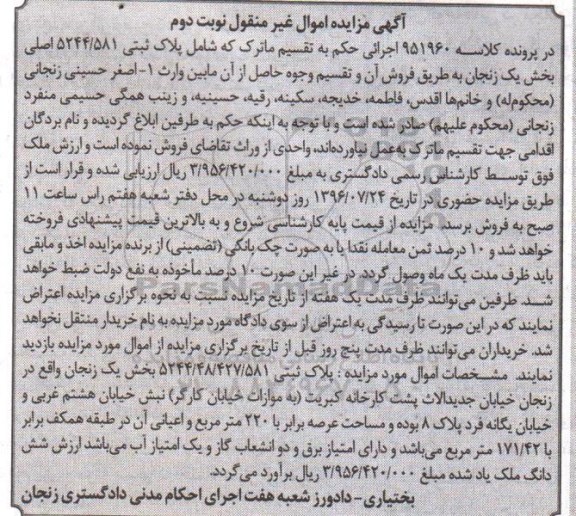 آگهی مزایده اموال غیر منقول نوبت دوم
در پرونده کلاسه ۹۵۱۹۶۰ اجرائی حکم به تقسیم ماترک که شامل پلاک ثبتی ۵۲۴۴/۵۸۱ اصلی
بخش یک زنجان به طریق فروش آن و تقسیم وجوه حاصل از آن مابین وارث ۱- اصغر حسینی زنجانی
(محکوم‌له) و خانم‌ها اقدس، فاطمه، خدیجه، سکینه، رقیه، حسینیه، و زینب همگی حسیمی منفرد
زنجانی (محکوم علیهم) صادر شده است و با توجه به اینکه حکم به طرفین ابلاغ گردیده و نام بردگان
اقدامی جهت تقسیم ماترک به‌عمل نیاورده‌اند، واحدی از وراث تقاضای فروش نموده است و ارزش ملک
فوق توسط کارشناس رسمی دادگستری به مبلغ ۳/۹۵۶/۴۲۰/۰۰۰ ریال ارزیابی شده و قرار است از
طریق مزایده حضوری در تاریخ ۱۳۹۶/۰۷/۲۴ روز دوشنبه در محل دفتر شعبه هفتم راس ساعت ۱۱
صبح به فروش برسد. مزایده از قیمت پایه کارشناسی شروع و به بالاترین قیمت پیشنهادی فروخته
خواهد شد و ۱۰ درصد ثمن معامله نقدا یا به صورت چک بانکی (تضمینی) از برنده مزایده اخذ و مابقی
باید ظرف مدت یک ماه وصول گردد. در غیر این صورت ۱۰ درصد مأخوذه به نفع دولت ضبط خواهد
شد. طرفین می‌توانند ظرف مدت یک هفته از تاریخ مزایده نسبت به نحوه برگزاری مزایده اعتراض
نمایند که در این صورت تا رسیدگی به اعتراض از سوی دادگاه مورد مزایده به نام خریدار منتقل نخواهد
شد. خریداران می‌توانند ظرف مدت پنج روز قبل از تاریخ برگزاری مزایده از اموال مورد مزایده بازدید
نمایند. مشخصات اموال مورد مزایده: پلاک ثبتی ۵۲۴۴/۴۸/۴۲۷/۵۸۱ بخش یک زنجان واقع در
زنجان خیابان جدیدالاث پشت کارخانه کبریت (به موازات خیابان کارگر) نبش خیابان هشتم غربی و
خیابان یگانه فرد پلاک ۸ بوده و مساحت عرصه برابر با ۲۲۰ متر مربع و اعیانی آن در طبقه همکف برابر
با ۱۷۱/۴۲ متر مربع می‌باشد و دارای امتیاز برق و دو انشعاب گاز و یک امتیاز آب می‌باشد ارزش شش
دانگ ملک یاد شده مبلغ ۳/۹۵۶/۴۲۰/۰۰۰ ریال برآورد می‌گردد.
بختیاری - دادورز شعبه هفت اجرای احکام مدنی دادگستری زنجان
ParsNamadData